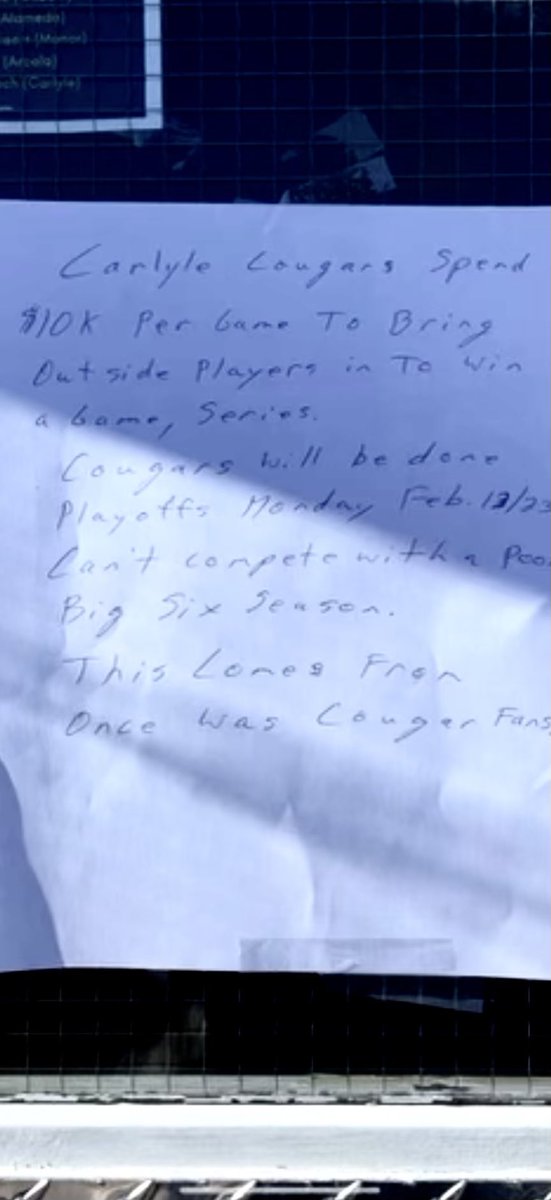 (Alameda)
(Manor)
(Arcola)
(Carlyle)
Carlyle Cougars Spend
$10K Per Game To Bring
Outside Players in To Win
a Game, Series.
Cougars will be done
Playoffs Monday Feb. 13/23
Can't compete with a
Big Six Season.
This Comes From
Once Was Cougar Fans